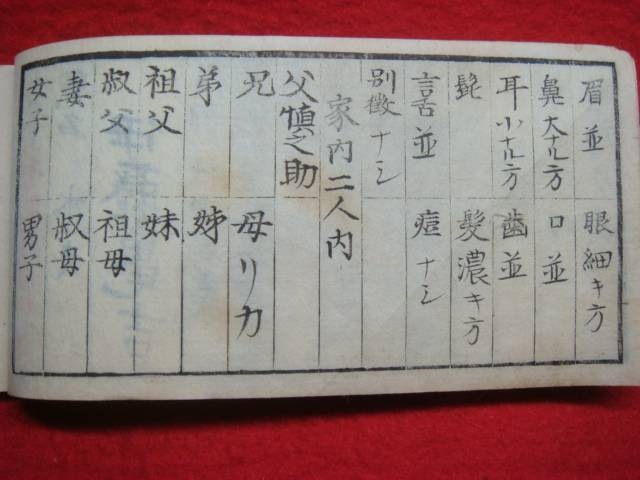 眉並 眼細キ方
鼻大ナル方 口並
耳小ナル方 歯並
髭 髪濃キ方
言舌並 痘ナシ
別徴ナシ
家内二人内
父慎之助
兄 母リカ
弟 姉
祖父 妹
叔父 祖母
妻 叔母
女子 男子